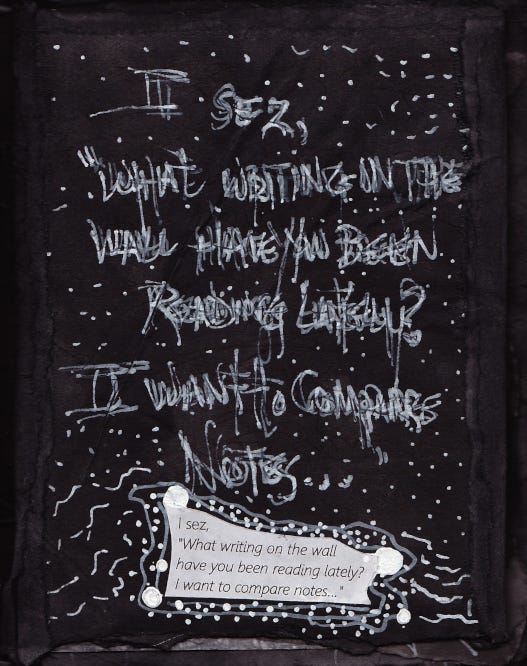 I SEZ,
"WHAT WRITING ON THE
WALL HAVE YOU BEEN
READING LATELY?
I WANT TO COMPARE
NOTES..."
I sez,
"What writing on the wall
have you been reading lately?
I want to compare notes..."